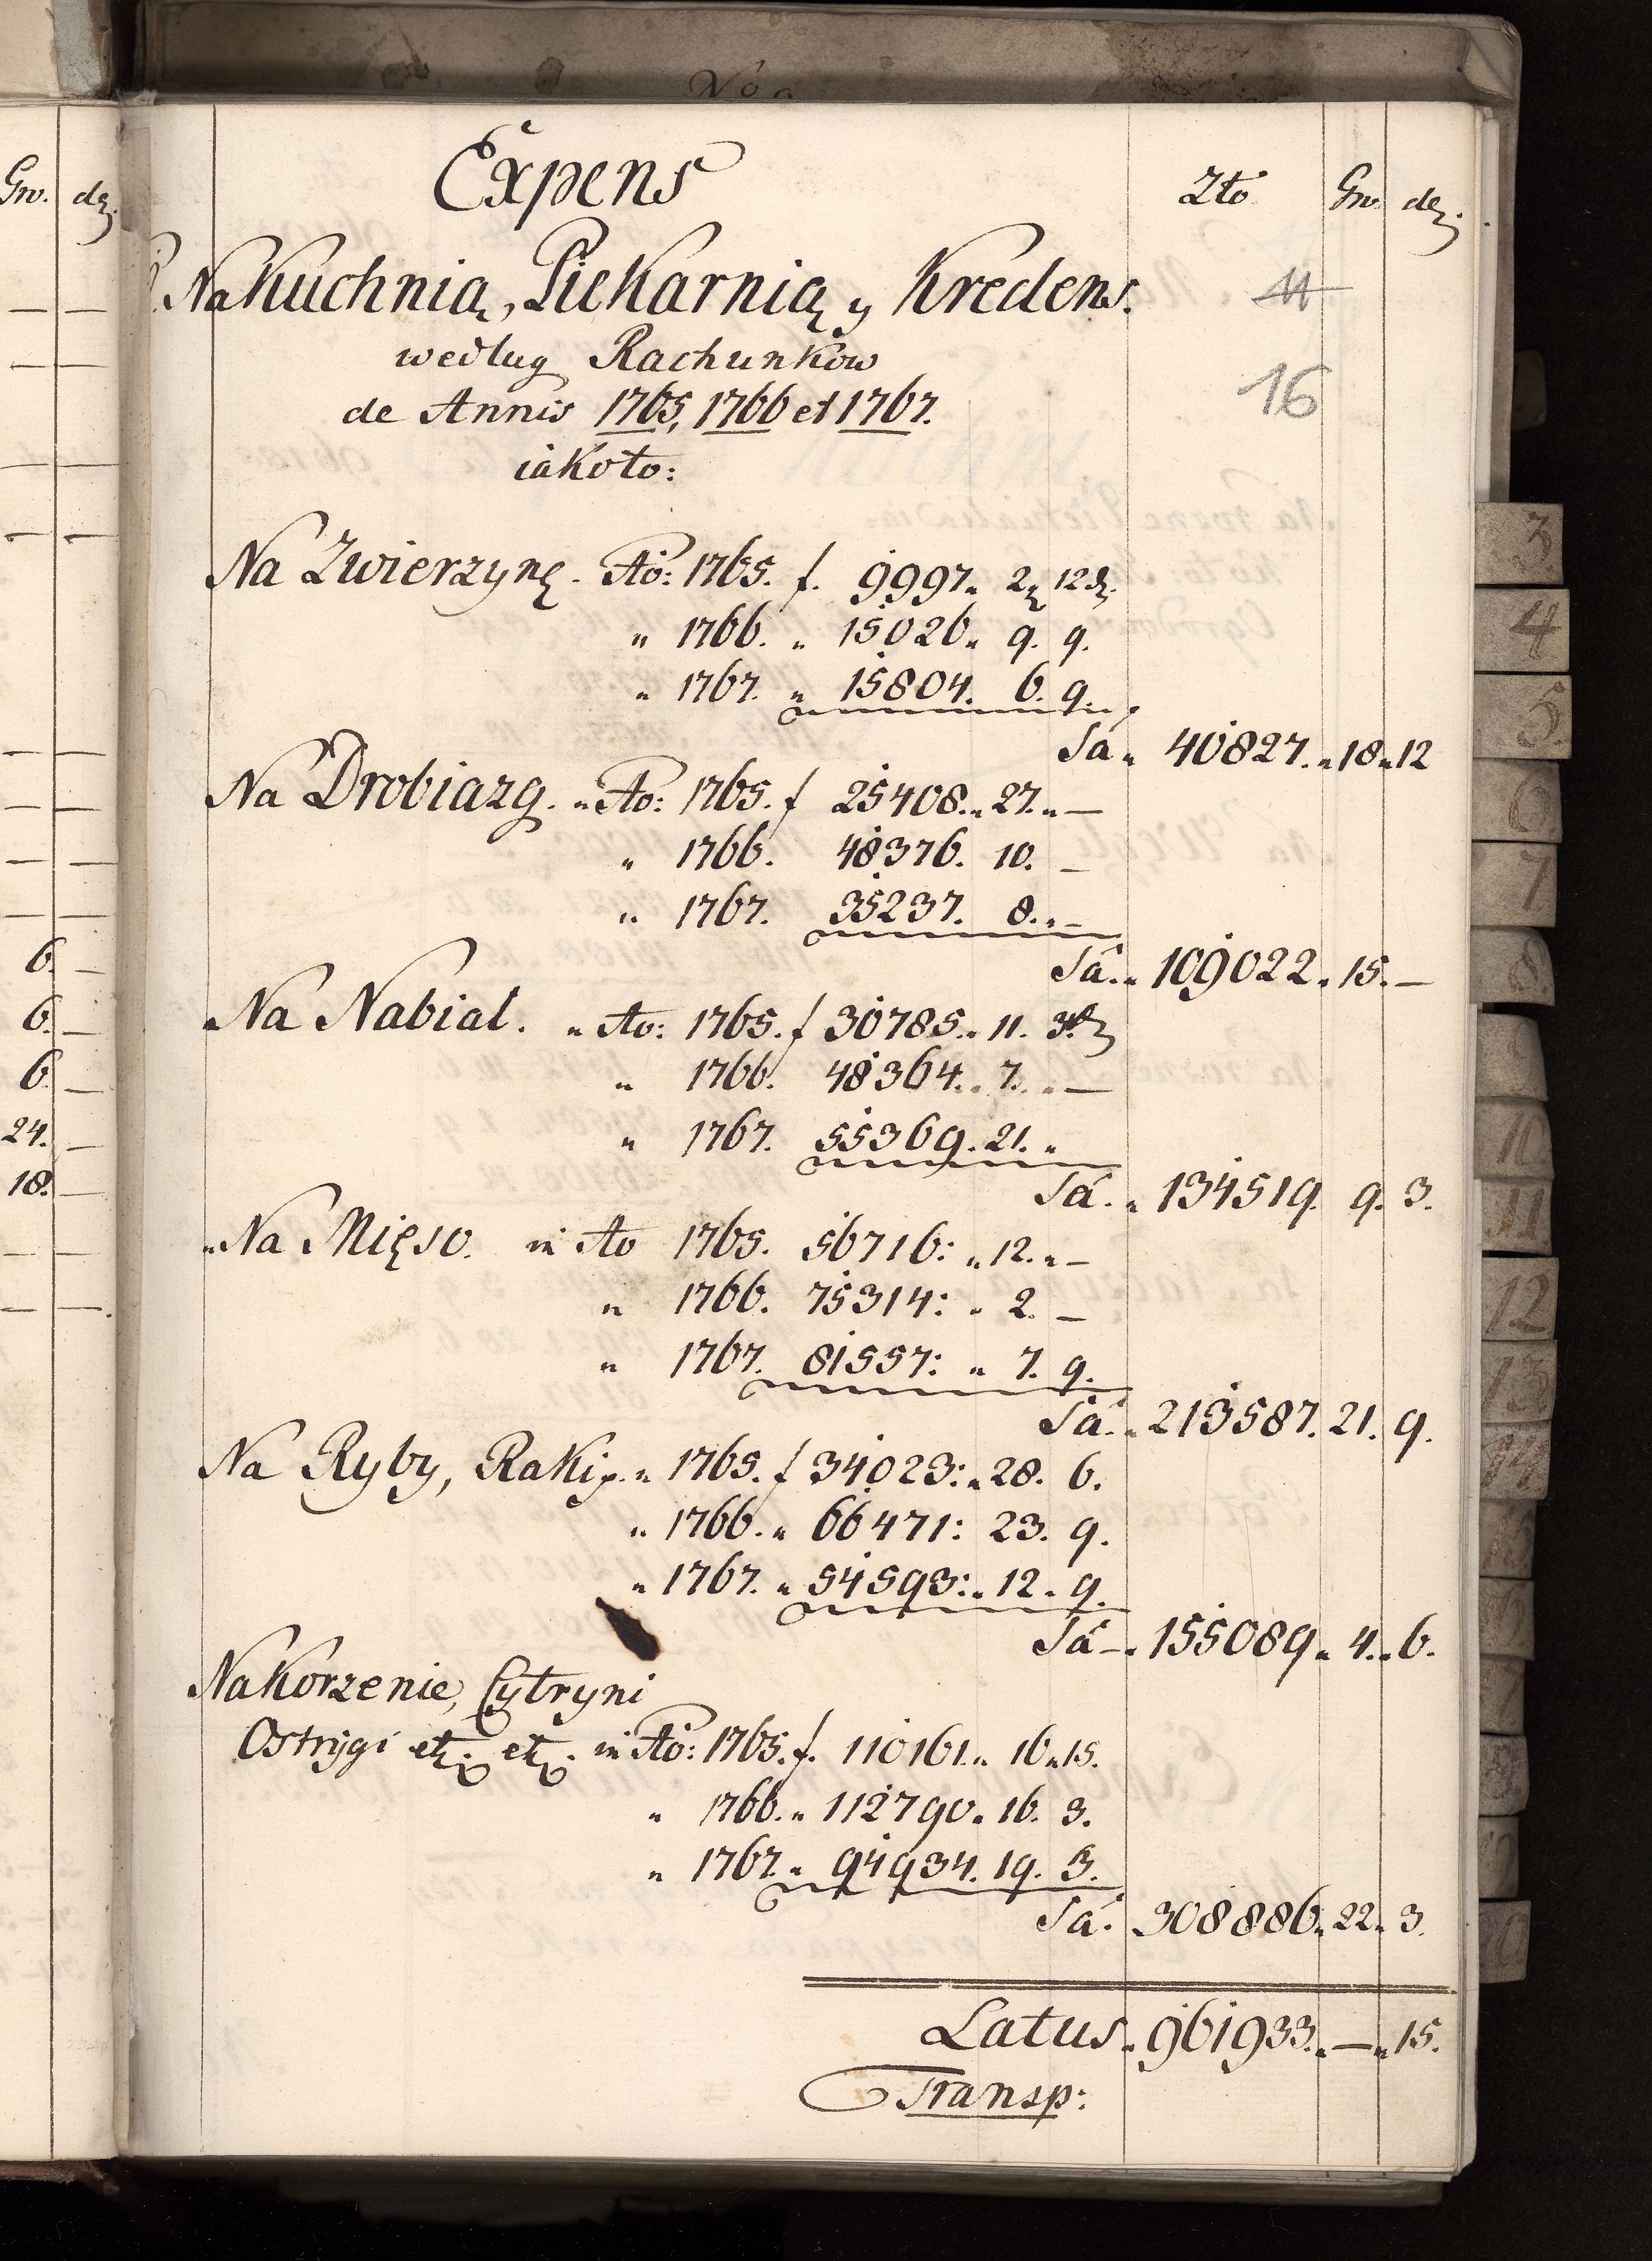 Gro. dez.
6. —
6. —
6. —
24. —
18. —
No a
Expens
Zło Gro dez.
Na Kuchnią, Piekarnią y Kredens. 11
według Rachunkow
de Annis 1765, 1766 et 1767. 16
iako to:
Na Zwierzynę. Ao: 1765. f. 9997„ 2„ 12 dz.
„ 1766. „ 15026„ 9. 9.
„ 1767. „ 15804. 6. 9.
Sa„ 40827.„18„12
Na Drobiazg. „ Ao: 1765. f 25408.„ 27.„ —
„ 1766. 48376. 10. —
„ 1767. 35237. 8.„ —
Sa.„ 109022„ 15. —
„Na Nabiał. „ Ao: 1765. f 30785„ 11. 3. dz
„ 1766. 48364„ 7. „ —
„ 1767. 55369. 21. „
Sa. „ 134519. 9. 3.
„Na Mięso. in Ao 1765. 56716: „ 12.„ —
„ 1766. 75314: „ 2. —
„ 1767. 81557: „ 7. 9.
Sa.„ 213587. 21. 9.
Na Ryby, Raki p. „ 1765. f 34023:„ 28. 6.
„ 1766. „ 66471: 23. 9.
„ 1767. „ 54593:„ 12„ 9.
Sa—„ 155089„ 4„ 6.
Na Korzenie, Cytryni
Ostrygi etz. etz. in Ao: 1765. f. 110161„ 16„15.
„ 1766. „ 112790„ 16. 3.
„ 1767. „ 94934. 19. 3.
Sa. 308886„ 22„ 3.
Latus„ 961933„ —„ 15.
Transp:
3
4
5.
6
7
8
9
10
11
12
13
14